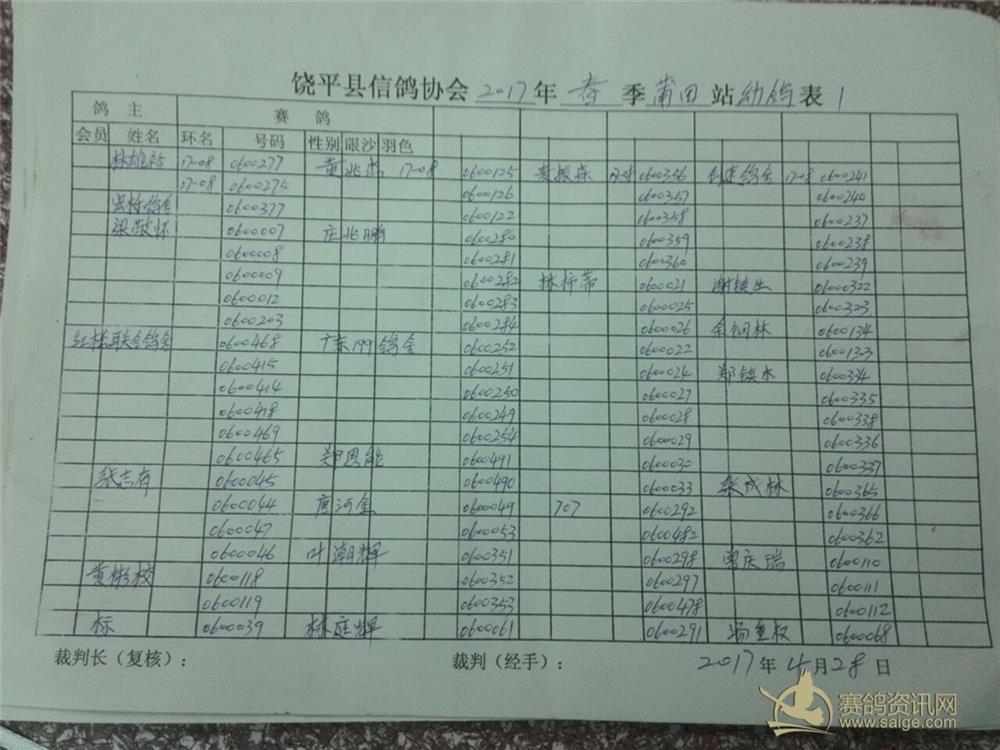 饶平县信鸽协会2017年春季莆田站幼鸽表1
鸽主 赛鸽
会员 姓名 环名 号码 性别 眼沙 羽色
17-08 0600277 黄兆 17-08 0600125 黄振森 0600356 鸽舍 17-08 0600241
17-08 0600275 0600126 0600357 0600240
鸽舍 0600377 0600122 0600358 0600237
梁 怀 0600007 庄兆鹏 0600280 0600359 0600238
0600008 0600281 0600360 0600239
0600009 0600282 林 0600021 谢 0600322
0600012 0600283 0600025 0600323
0600203 0600284 0600026 余 林 0600134
红 联合鸽舍 0600468 广东199鸽舍 0600252 0600022 0600133
0600415 0600251 0600024 郑 木 0600334
0600414 0600250 0600027 0600335
0600418 0600249 0600028 0600338
0600469 0600254 0600029 0600336
0600465 郑恩能 0600491 0600030 0600337
张志存 0600045 0600490 0600033 成林 0600365
0600044 唐河金 0600049 707 0600292 0600366
0600047 0600053 0600482 0600362
0600046 叶潮辉 0600351 0600298 曾庆瑞 0600110
黄彬校 0600118 0600352 0600297 0600111
0600119 0600353 0600478 0600112
标 0600039 林庭辉 0600061 0600291 权 0600068
裁判长（复核）： 裁判（经手）： 2017年4月28日
赛鸽资讯网
www.saige.com